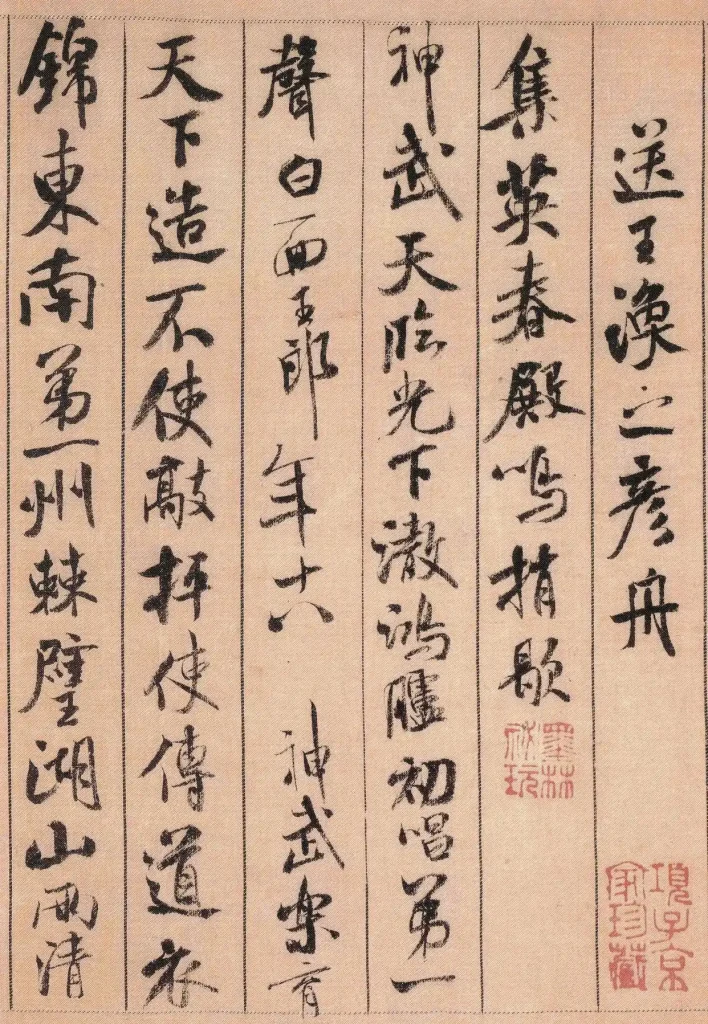 送王渙之彥舟
集英春殿鳴捎歇
神武天臨光下澈鴻臚初唱第一
聲白面王郎年十八神武樂育
天下造不使敲抨使傳道衣
錦東南第一州棘璧湖山兩清
墨林秘玩
項子京家珍藏